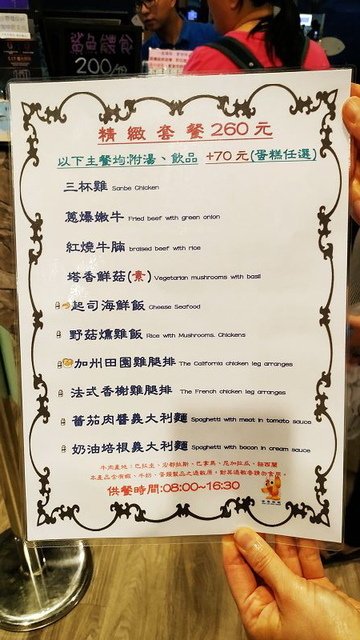 鯊魚餵食
200
精緻套餐260元
以下主餐均:附湯、飲品 +70元(蛋糕任選)
三杯雞 Sanbe Chicken
蔥爆嫩牛 Fried beef with green onion
紅燒牛腩 braised beef with rice
塔香鮮菇(素) Vegetarian mushrooms with basil
起司海鮮飯 Cheese Seafood
野菇燻雞飯 Rice with Mushrooms, Chickens
加州田園雞腿排 The California chicken leg arranges
法式香榭雞腿排 The French chicken leg arranges
蕃茄肉醬義大利麵 Spaghetti with meat in tomato sauce
奶油培根義大利麵 Spaghetti with bacon in cream sauce
牛肉產地:巴拉圭、宏都拉斯、巴拿馬、尼加拉瓜、紐西蘭
本產品含有蝦、牛奶、蛋類製品之過敏原,對其過敏者請勿食用。
供餐時間:08:00~16:30